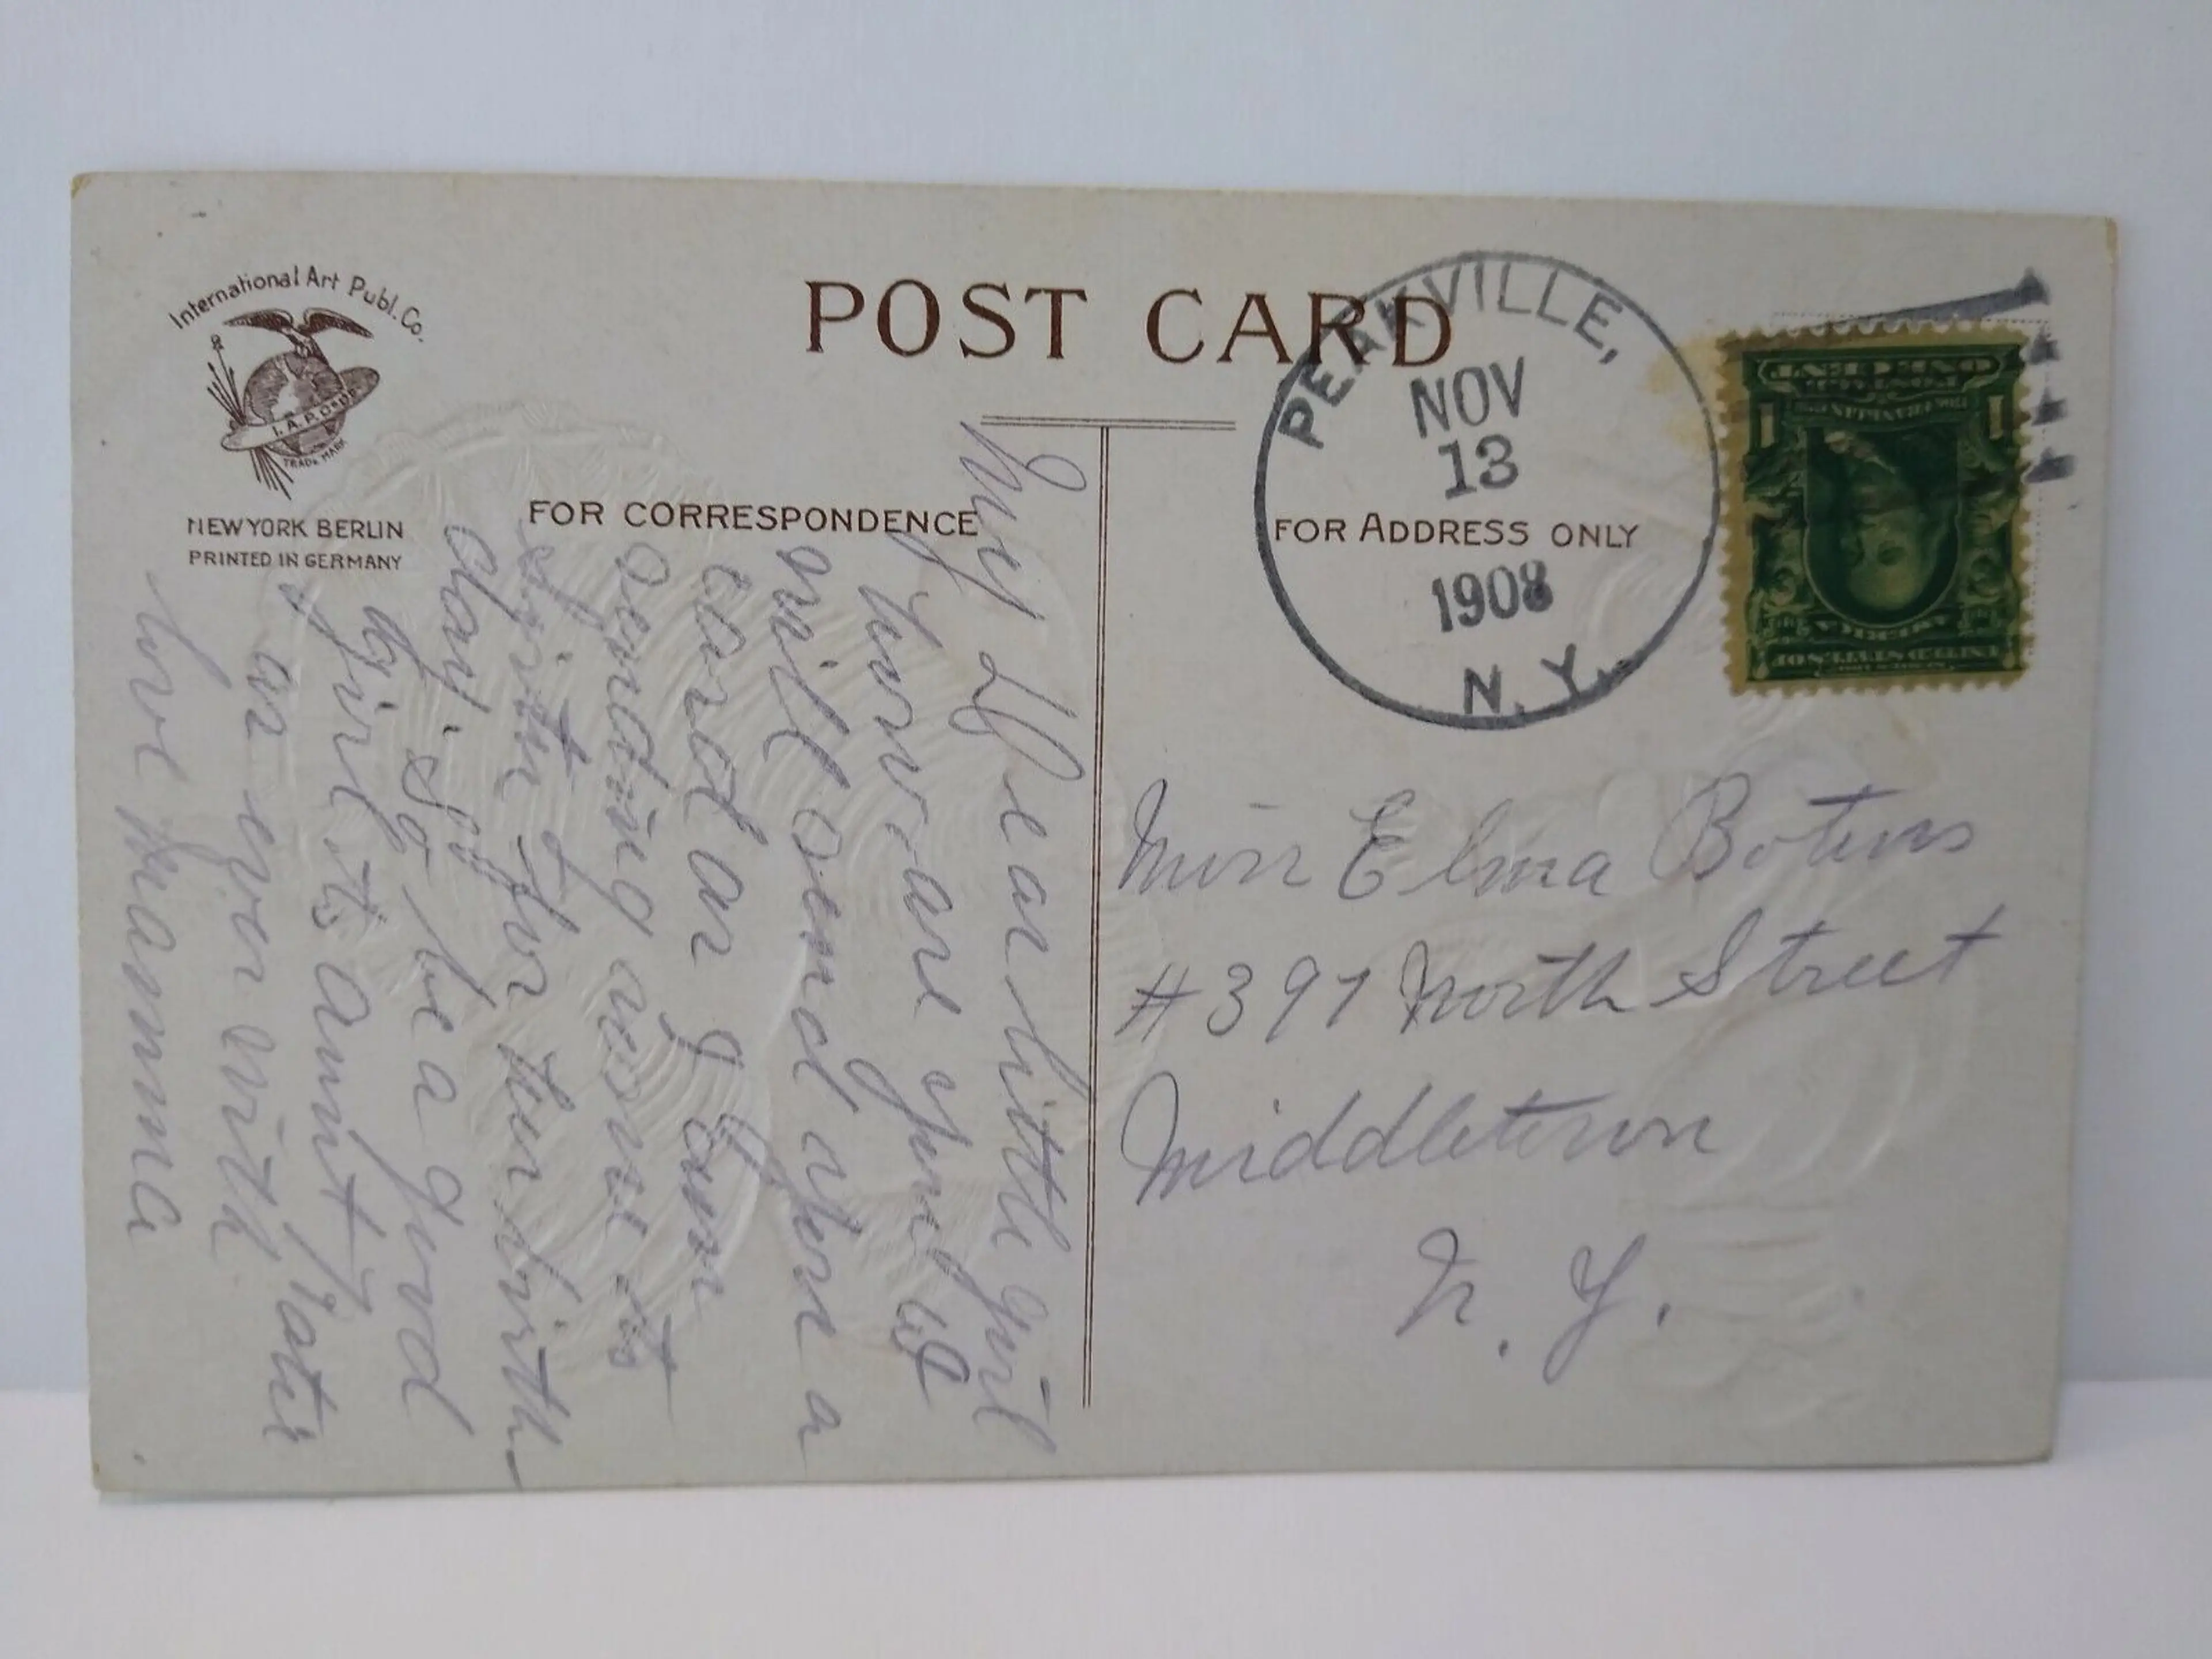 International Art Publ. Co.
I. A. P. Co.
TRADE MARK
NEW YORK BERLIN
PRINTED IN GERMANY
POST CARD
FOR CORRESPONDENCE
FOR ADDRESS ONLY
PEAKVILLE,
NOV
13
1908
N. Y.
ONE CENT
1 1
My Dear little girl
how are you
will send you a
card as I am
sending one to
for her birth-
day. so be a good
girl to aunt
as ever with
love Mamma
Miss Elma
#397 North Street
Middletown
N. Y.